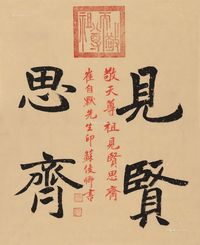 見賢
敬天尊祖見賢思齊
崔自默先生印蘇俊卿書
思齊